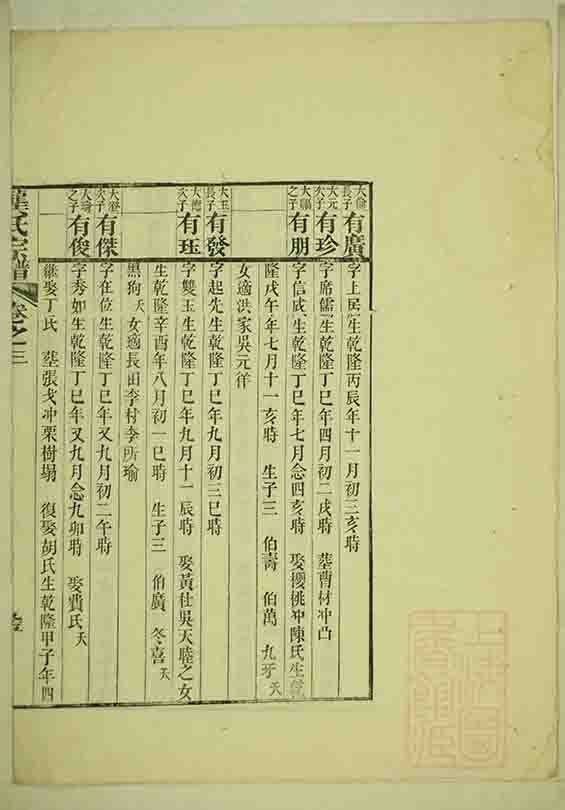 大倫長子有廣 字上居 生乾隆丙辰年十一月初三亥時
大元次子有珍 字席儒 生乾隆丁巳年四月初二戌時 塟曹材冲凸
大福之子有朋 字信成 生乾隆丁巳年七月念四亥時 娶櫻桃冲陳氏生乾
隆戊午年七月十一亥時 生子三 伯壽 伯萬 九牙夭
女適洪家吳元徉
大玉長子有發 字起先 生乾隆丁巳年九月初三巳時
大應次子有珏 字雙玉 生乾隆丁巳年九月十一辰時 娶黃仕吳天睦之女
生乾隆辛酉年八月初一巳時 生子三 伯廣 冬喜夭
黑狗夭 女適長田李村李所瑜
次子有傑 字在位 生乾隆丁巳年又九月初二午時
之子有俊 字秀如 生乾隆丁巳年又九月念九卯時 娶費氏夭
繼娶丁氏 塟張戈冲栗樹塌 復娶胡氏生乾隆甲子年四
氏宗譜 卷之三